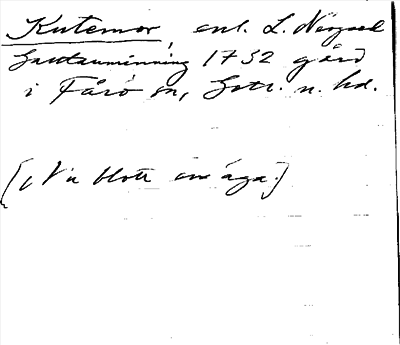 Kutemor, enl. L. Neogard
Gautauminning 1732 gård
i Fårö sn, Gotl. n. hd.
[Nu blott en äga.]